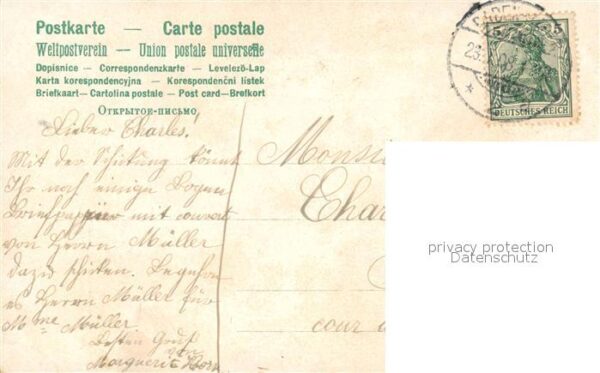 Postkarte — Carte postale
Weltpostverein — Union postale universelle
Dopisnice — Correspondenzkarte — Levelező-Lap
Karta korespondencyjna — Korespondenční lístek
Briefkaart — Cartolina postale — Post card — Brefkort
Открытое-письмо
Lieber Charles!
Mit der könnt
Ihr noch einige Bogen
Briefpapier mit couvert
von Herrn Müller
dazu schicken.
es Herrn Müller für
Mme Müller.
Besten Gruß
Monsi
Char
cour
BADEN
5 5
DEUTSCHES REICH
privacy protection
Datenschutz